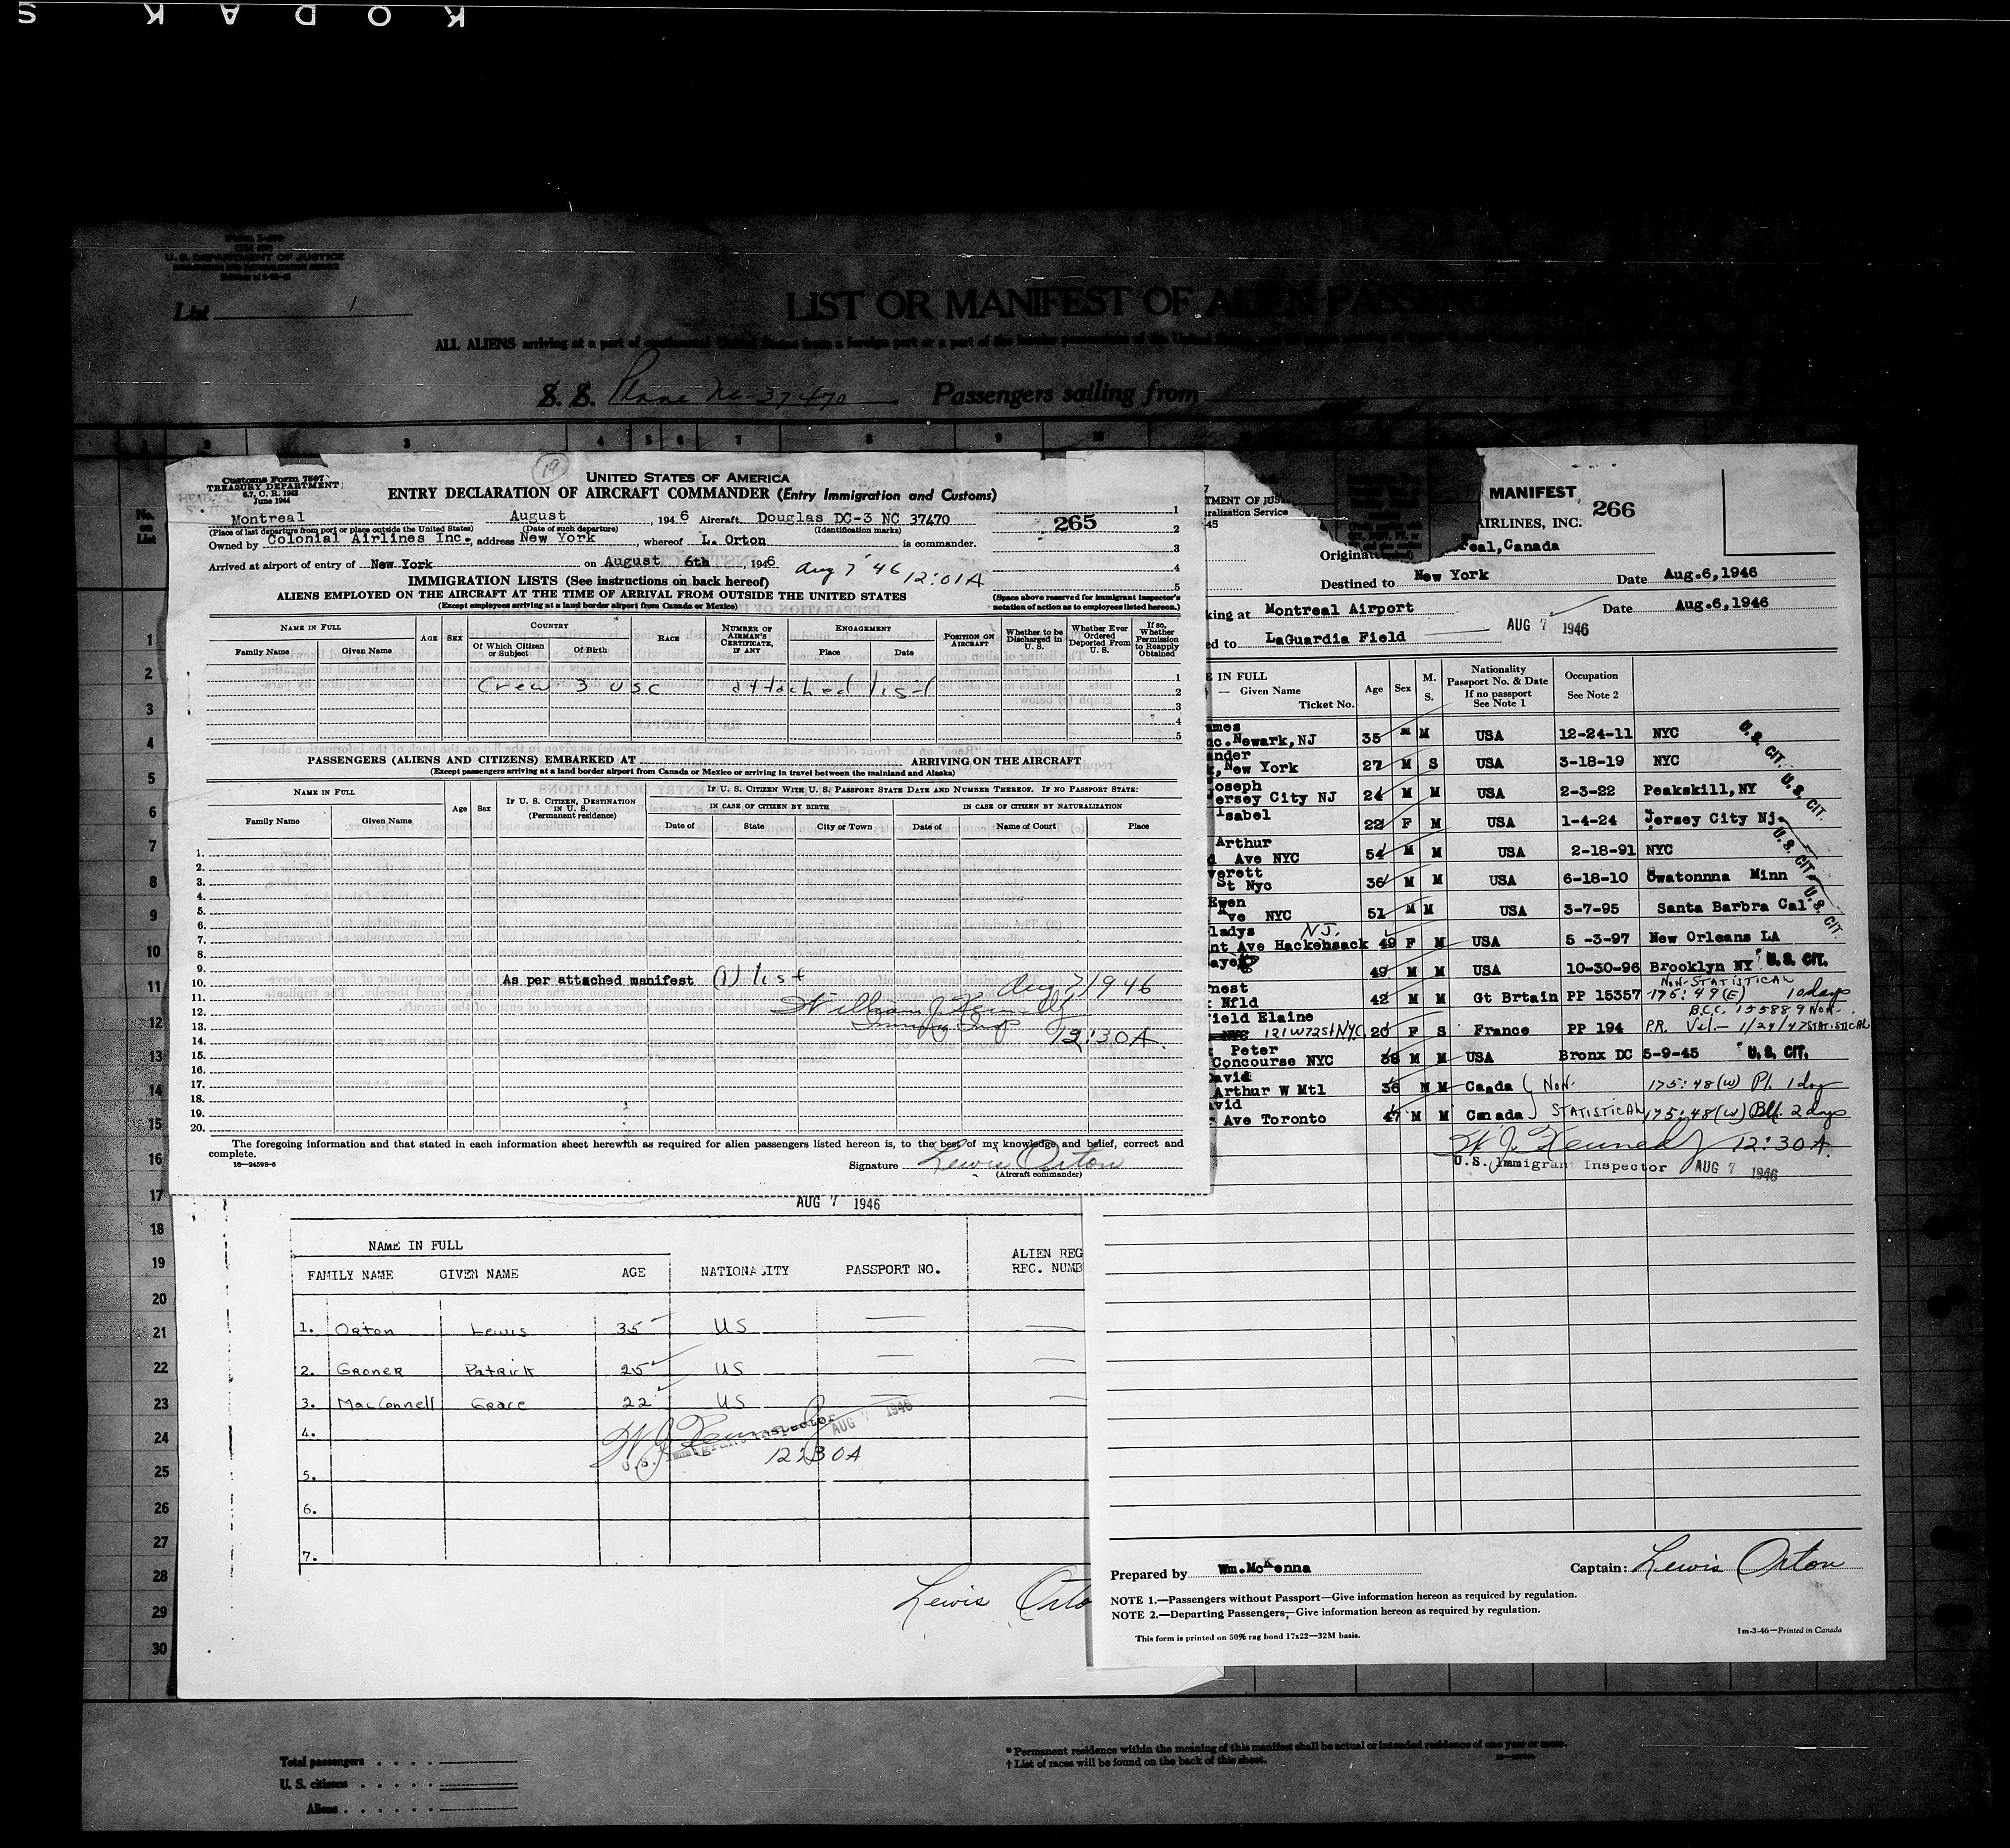 KODAK S
U. S. DEPARTMENT OF JUSTICE
List 1
LIST OR MANIFEST OF ALIEN PASSENGERS
ALL ALIENS arriving at a port of continental United States from a foreign port or a port of the insular possessions of the United States
S. S. Plane NC-37470 Passengers sailing from
1 2 3 4 5 6 7 8 9 10
No. on List
1
2
3
4
5
6
7
8
9
10
11
12
13
14
15
16
17
18
19
20
21
22
23
24
25
26
27
28
29
30
Customs Form 7507
TREASURY DEPARTMENT
6.7, C. R. 1943
June 1944
19
UNITED STATES OF AMERICA
ENTRY DECLARATION OF AIRCRAFT COMMANDER (Entry Immigration and Customs)
Montreal August , 194 6 Aircraft Douglas DC-3 NC 37470
(Place of last departure from port or place outside the United States) (Date of such departure) (Identification marks)
Owned by Colonial Airlines Inc., address New York, whereof L. Orton is commander.
Arrived at airport of entry of New York on August 6th, 1946 Aug 7 '46 12:01A
265
1
2
3
4
5
(Space above reserved for immigrant inspector's notation of action as to employees listed hereon.)
IMMIGRATION LISTS (See instructions on back hereof)
ALIENS EMPLOYED ON THE AIRCRAFT AT THE TIME OF ARRIVAL FROM OUTSIDE THE UNITED STATES
(Except employees arriving at a land border airport from Canada or Mexico)
NAME IN FULL
Family Name Given Name
AGE SEX
COUNTRY
Of Which Citizen or Subject Of Birth
RACE
NUMBER OF AIRMAN'S CERTIFICATE, IF ANY
ENGAGEMENT
Place Date
POSITION ON AIRCRAFT
Whether to be Discharged in U. S.
Whether Ever Ordered Deported From U. S.
If so, Whether Permission to Reapply Obtained
Crew 3 USC attached list
1
2
3
4
5
PASSENGERS (ALIENS AND CITIZENS) EMBARKED AT ARRIVING ON THE AIRCRAFT
(Except passengers arriving at a land border airport from Canada or Mexico or arriving in travel between the mainland and Alaska)
NAME IN FULL
Family Name Given Name
Age Sex
IF U. S. CITIZEN, DESTINATION IN U. S. (Permanent residence)
IF U. S. CITIZEN WITH U. S. PASSPORT STATE DATE AND NUMBER THEREOF. IF NO PASSPORT STATE:
IN CASE OF CITIZEN BY BIRTH IN CASE OF CITIZEN BY NATURALIZATION
Date of State City or Town Date of Name of Court Place
1.
2.
3.
4.
5.
6.
7.
8.
9.
10. As per attached manifest (1) list Aug 7 1946
11.
12. William J Kennedy
13. Immig Insp
14. 12:30A.
15.
16.
17.
18.
19.
20.
The foregoing information and that stated in each information sheet herewith as required for alien passengers listed hereon is, to the best of my knowledge and belief, correct and
complete.
16—24598-5
Signature Lewis Orton
(Aircraft commander)
AUG 7 1946
NAME IN FULL
FAMILY NAME GIVEN NAME AGE NATIONALITY PASSPORT NO. ALIEN REG
REC. NUMB
1. Orton Lewis 35 US
2. Groner Patrick 25 US
3. MacConnell Grace 22 US
4.
W J Kennedy
U. S. Immigrant Inspector AUG 7 1946
12:30A
5.
6.
7.
Lewis Orto
MANIFEST 266
AIRLINES, INC.
TMENT OF JUS
ralization Service
45
Originat eal, Canada
Destined to New York Date Aug.6,1946
king at Montreal Airport Date Aug.6,1946
AUG 7 1946
ed to LaGuardia Field
E IN FULL
— Given Name
Ticket No.
Age Sex M. S.
Nationality
Passport No. & Date
If no passport
See Note 1
Occupation
See Note 2
ames
nc.Newark,NJ 35 M M USA 12-24-11 NYC U. S. CIT.
ander
k,New York 27 M S USA 3-18-19 NYC
oseph
ersey City NJ 24 M M USA 2-3-22 Peakskill,NY U. S. CIT.
Isabel
22 F M USA 1-4-24 Jersey City Nj
Arthur
d Ave NYC 54 M M USA 2-18-91 NYC U. S. CIT.
verett
St Nyc 36 M M USA 6-18-10 Owatonnna Minn
Ewen
Ave NYC 51 M M USA 3-7-95 Santa Barbra Cal U. S. CIT.
ladys N.J.
nt Ave Hackensack 49 F M USA 5 -3-97 New Orleans LA
aye
49 M M USA 10-30-96 Brooklyn NY U. S. CIT.
NON-STATISTICAL
nest
Nfld 42 M M Gt Brtain PP 15357 175:49(E) 10 days
B.C.C. 155889 NON-
ield Elaine
121W72St NYC. 20 F S France PP 194 P.R. Val.— 1/24/47 STATISTICAL
Peter
Concourse NYC 38 M M USA Bronx DC 5-9-45 U. S. CIT.
avid
Arthur W Mtl 36 M M Caada NON- 175:48(W) Pl. 1 day
avid
Ave Toronto 47 M M Canada STATISTICAL 175:48(W) 2 days
W J Kennedy 12:30A.
U.S. Immigrant Inspector AUG 7 1946
Prepared by Wm.McKenna Captain: Lewis Orton
NOTE 1.—Passengers without Passport—Give information hereon as required by regulation.
NOTE 2.—Departing Passengers—Give information hereon as required by regulation.
This form is printed on 50% rag bond 17x22—32M basis. 1m-3-46—Printed in Canada
Total passengers
U. S. citizens
Aliens
* Permanent residence within the meaning of this manifest shall be actual or intended residence of one year or more.
† List of races will be found on the back of this sheet.